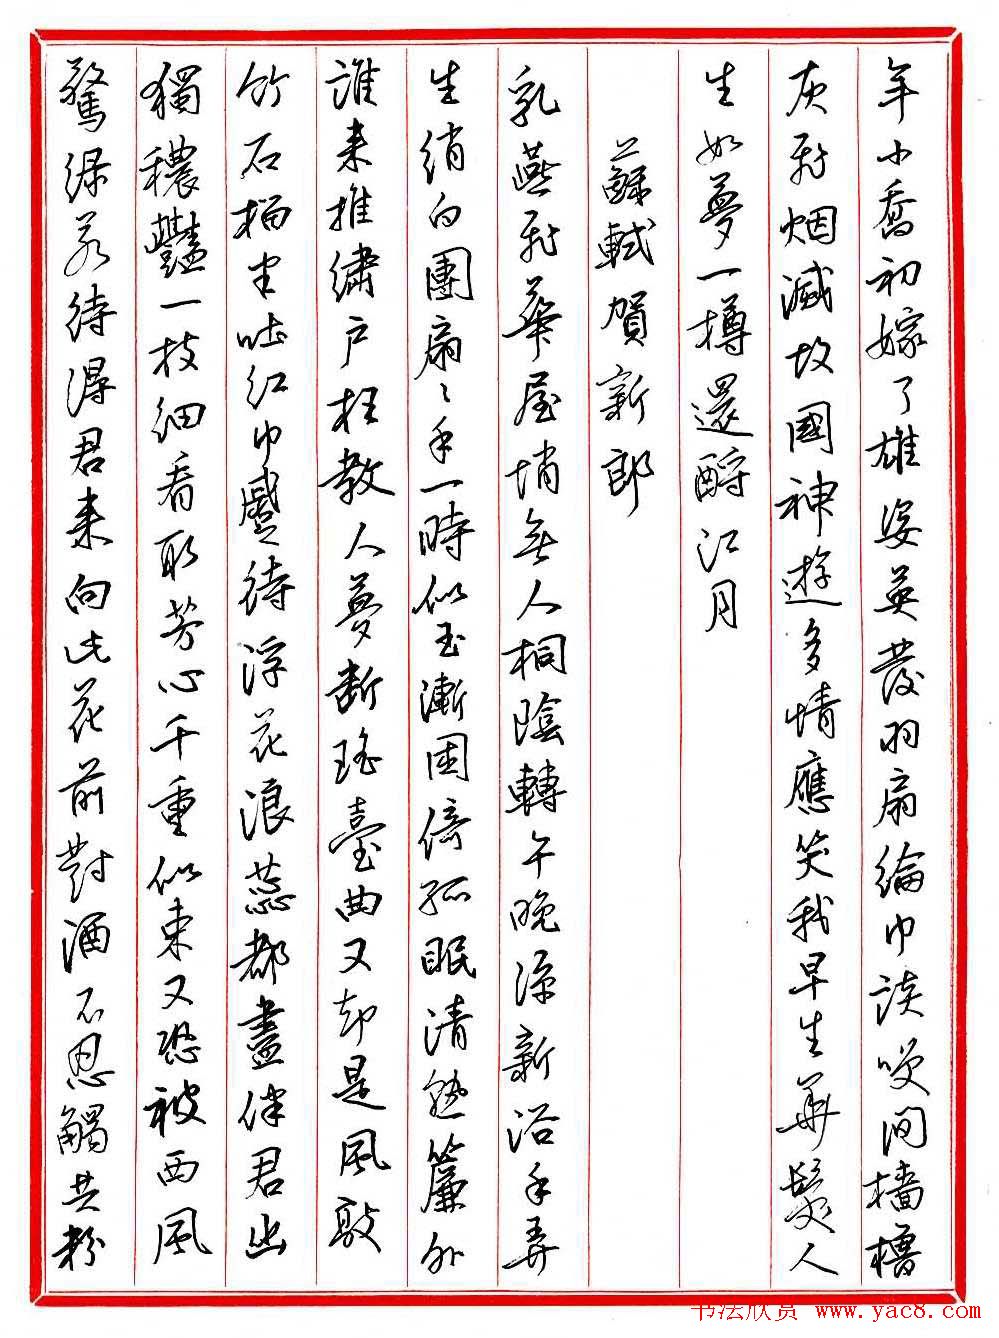 年小喬初嫁了雄姿英發羽扇綸巾談笑間檣櫓
灰飛烟滅故國神遊多情應笑我早生華髮人
生如夢一樽還酹江月
蘇軾賀新郎
乳燕飛華屋悄無人桐陰轉午晚涼新浴手弄
生綃白團扇扇手一時似玉漸困倚孤眠清熟簾外
誰來推繡户枉教人夢斷瑤臺曲又却是風敲
竹石榴半吐紅巾蹙待浮花浪蕊都盡伴君幽
獨穠豔一枝細看取芳心千重似束又恐被西風
驚綠若待得君來向此花前對酒不忍觸共粉
书法欣赏 www.yac8.com